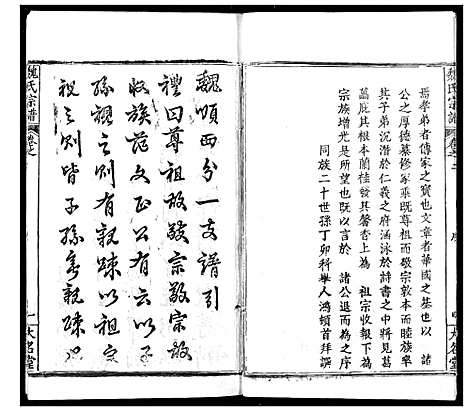 魏氏宗譜
卷之二
焉孝弟者傳家之寶也文章者華國之基也以 諸
公之厚德纂修家乘既尊祖而敬宗敦本而睦族率
其子弟沉潛於仁義之府涵泳於詩書之中將見葛
藟庇其根本蘭桂發其馨香上為 祖宗收報下為
宗族增光是所望也既以言於 諸公退而為之序
同族二十世孫丁卯科舉人鴻頓首拜譔
大名堂
魏氏宗譜
卷之
魏順西分一支譜引
禮曰尊祖故敬宗敬宗故
收族范文正公有云以子
孫視之則有親疎以祖宗
視之則皆子孫無親疎也
一
大名堂